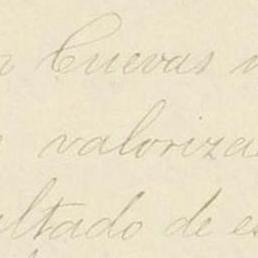 n Cuevas
valoriza
ultado de es